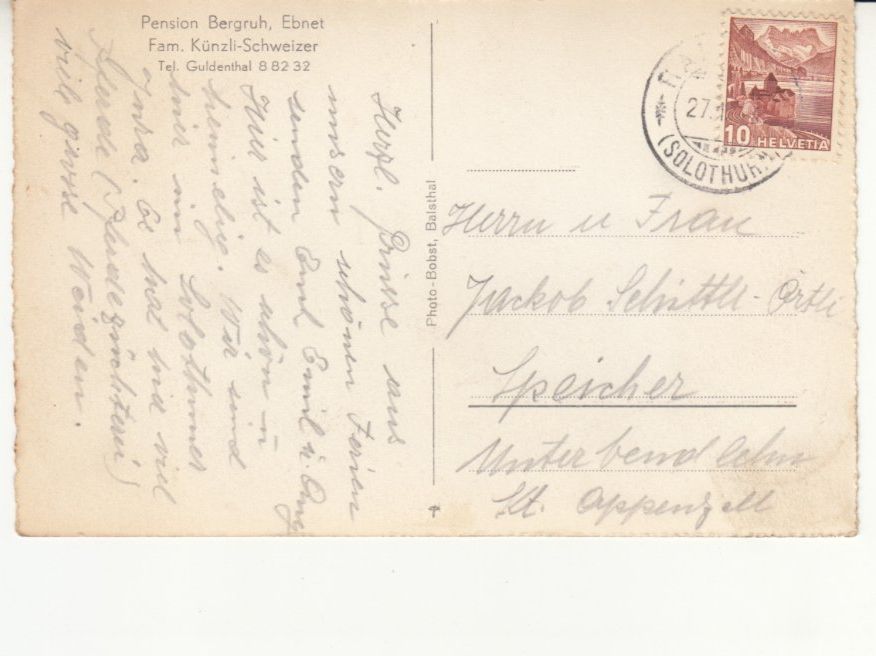 Pension Bergruh, Ebnet
Fam. Künzli-Schweizer
Tel. Guldenthal 8 82 32
Herzl. Grüsse aus
unsern schönen Ferien
senden Euch Emil u.
Hier ist es schön u
heimelig. Wir sind
hier im Solothurner
Jura. Es hat hie viel
Pferde (Pferdezüchterei)
viele grosse Weiden.
Photo-Bobst, Balsthal
27.
(SOLOTHURN)
10 HELVETIA
Herrn u Frau
Jackob Schittli-Örtli
Speicher
Unterbendlehn
Kt. Appenzell